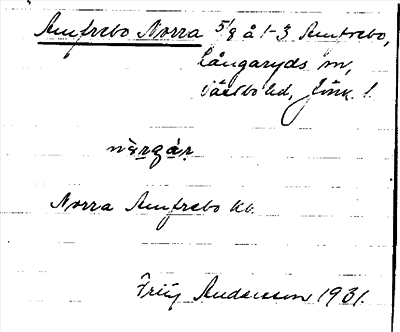 Amfrebo Norra 5/8 å 1-3 Amfrebo,
Långaryds sn,
Västbo hd, Jönk. l.
närgår
Norra Amfrebo kb.
Fritz Andersson 1931.